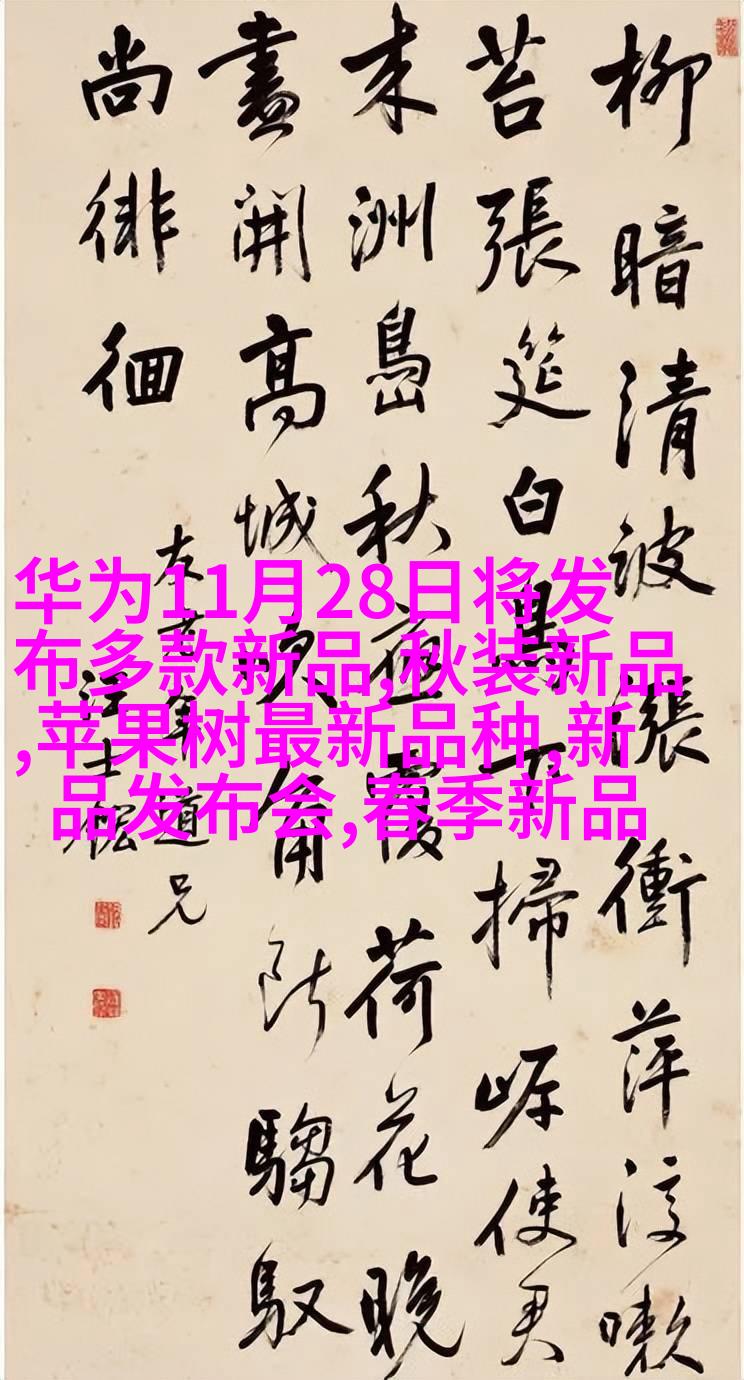 柳暗清波漲衝萍復嗽
苔張筵白鳥下掃岸使君
来洲島秋荷花晚
盡開高城吹角断騶馭
尚徘徊
道兄
华为11月28日将发
布多款新品,秋装新品
,苹果树最新品种,新
品发布会,春季新品